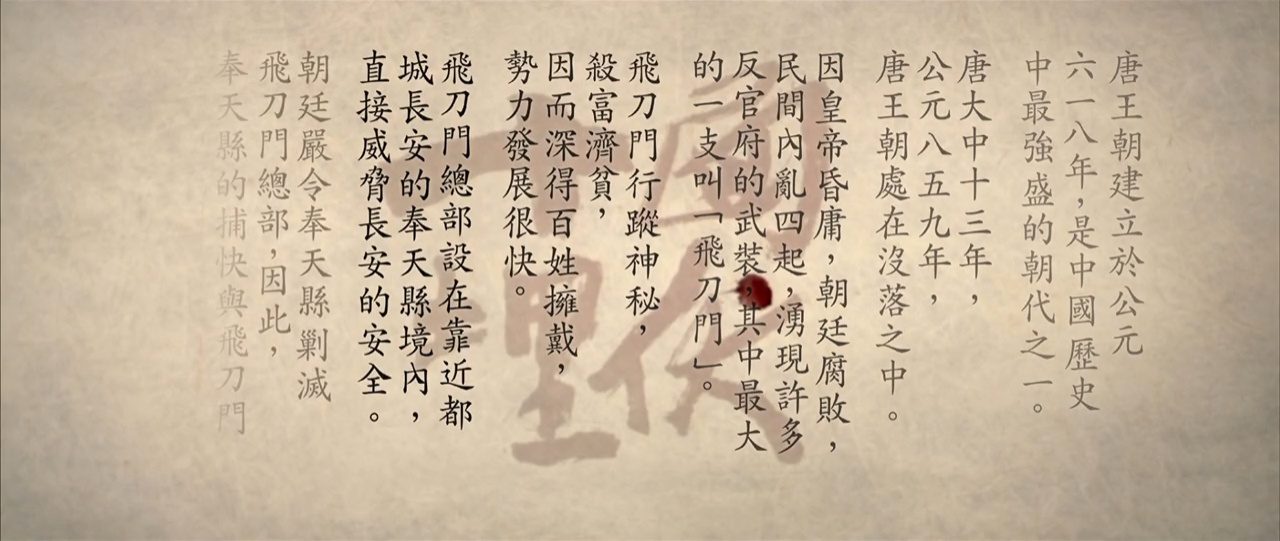 唐王朝建立於公元
六一八年,是中國歷史
中最強盛的朝代之一。
唐大中十三年,
公元八五九年,
唐王朝處在沒落之中。
因皇帝昏庸,朝廷腐敗,
民間內亂四起,湧現許多
反官府的武裝,其中最大
的一支叫「飛刀門」。
飛刀門行蹤神秘,
殺富濟貧,
因而深得百姓擁戴,
勢力發展很快。
飛刀門總部設在靠近都
城長安的奉天縣境內,
直接威脅長安的安全。
朝廷嚴令奉天縣剿滅
飛刀門總部,因此,
奉天縣的捕快與飛刀門